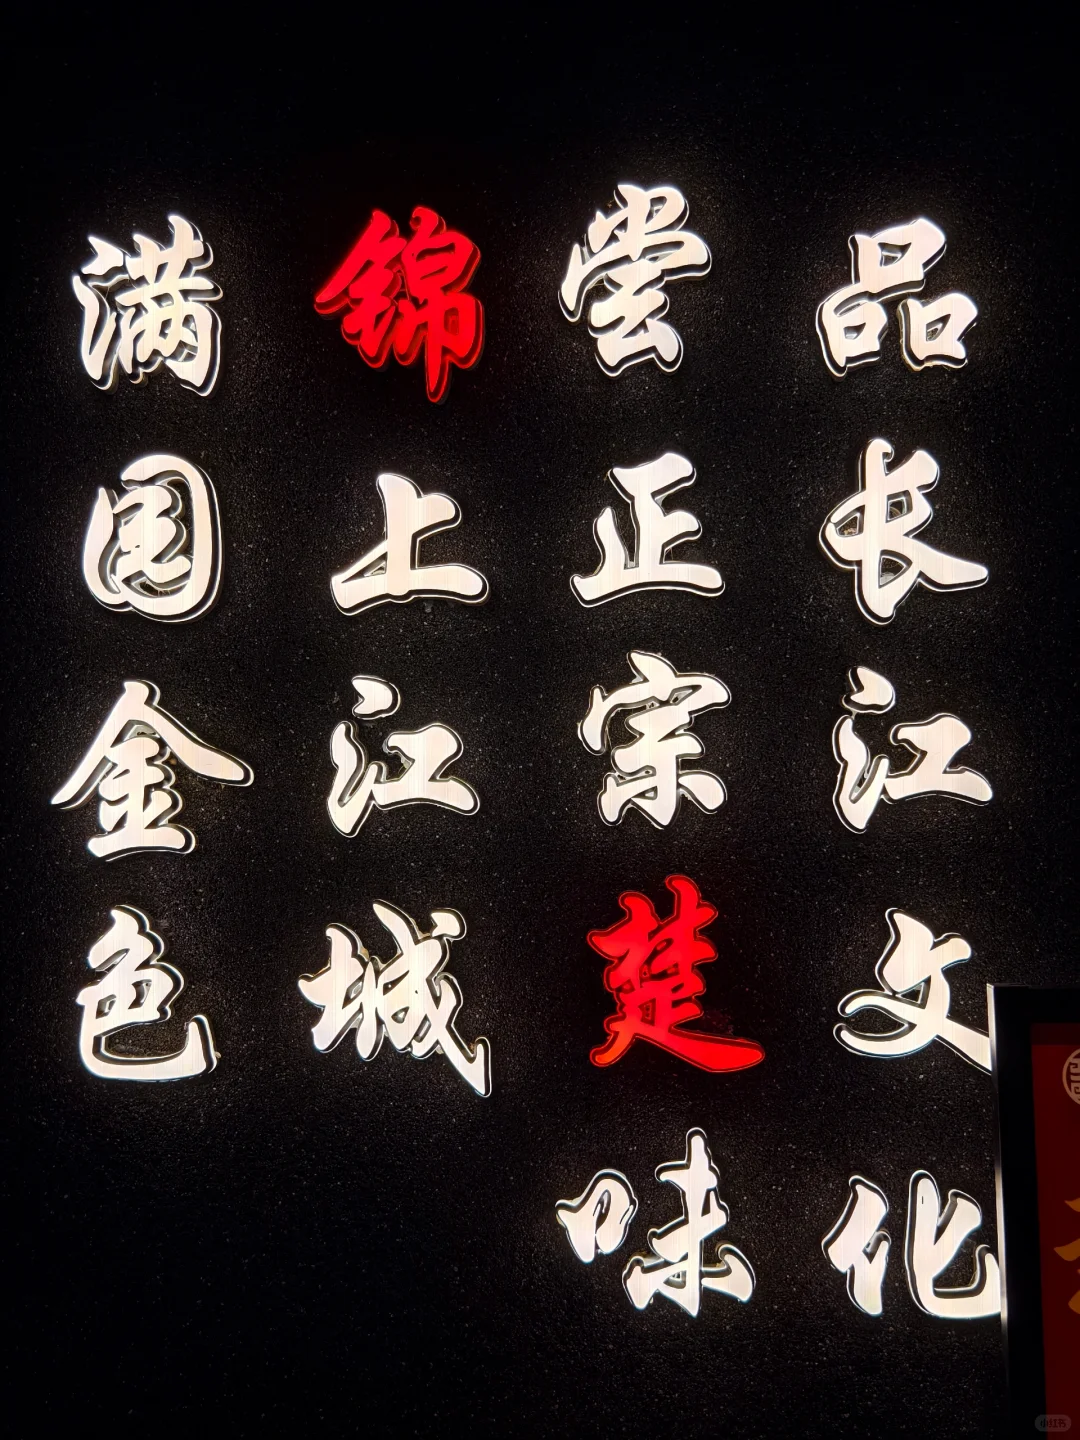 品长江文化
尝正宗楚味
锦上江城
满园金色
小红书